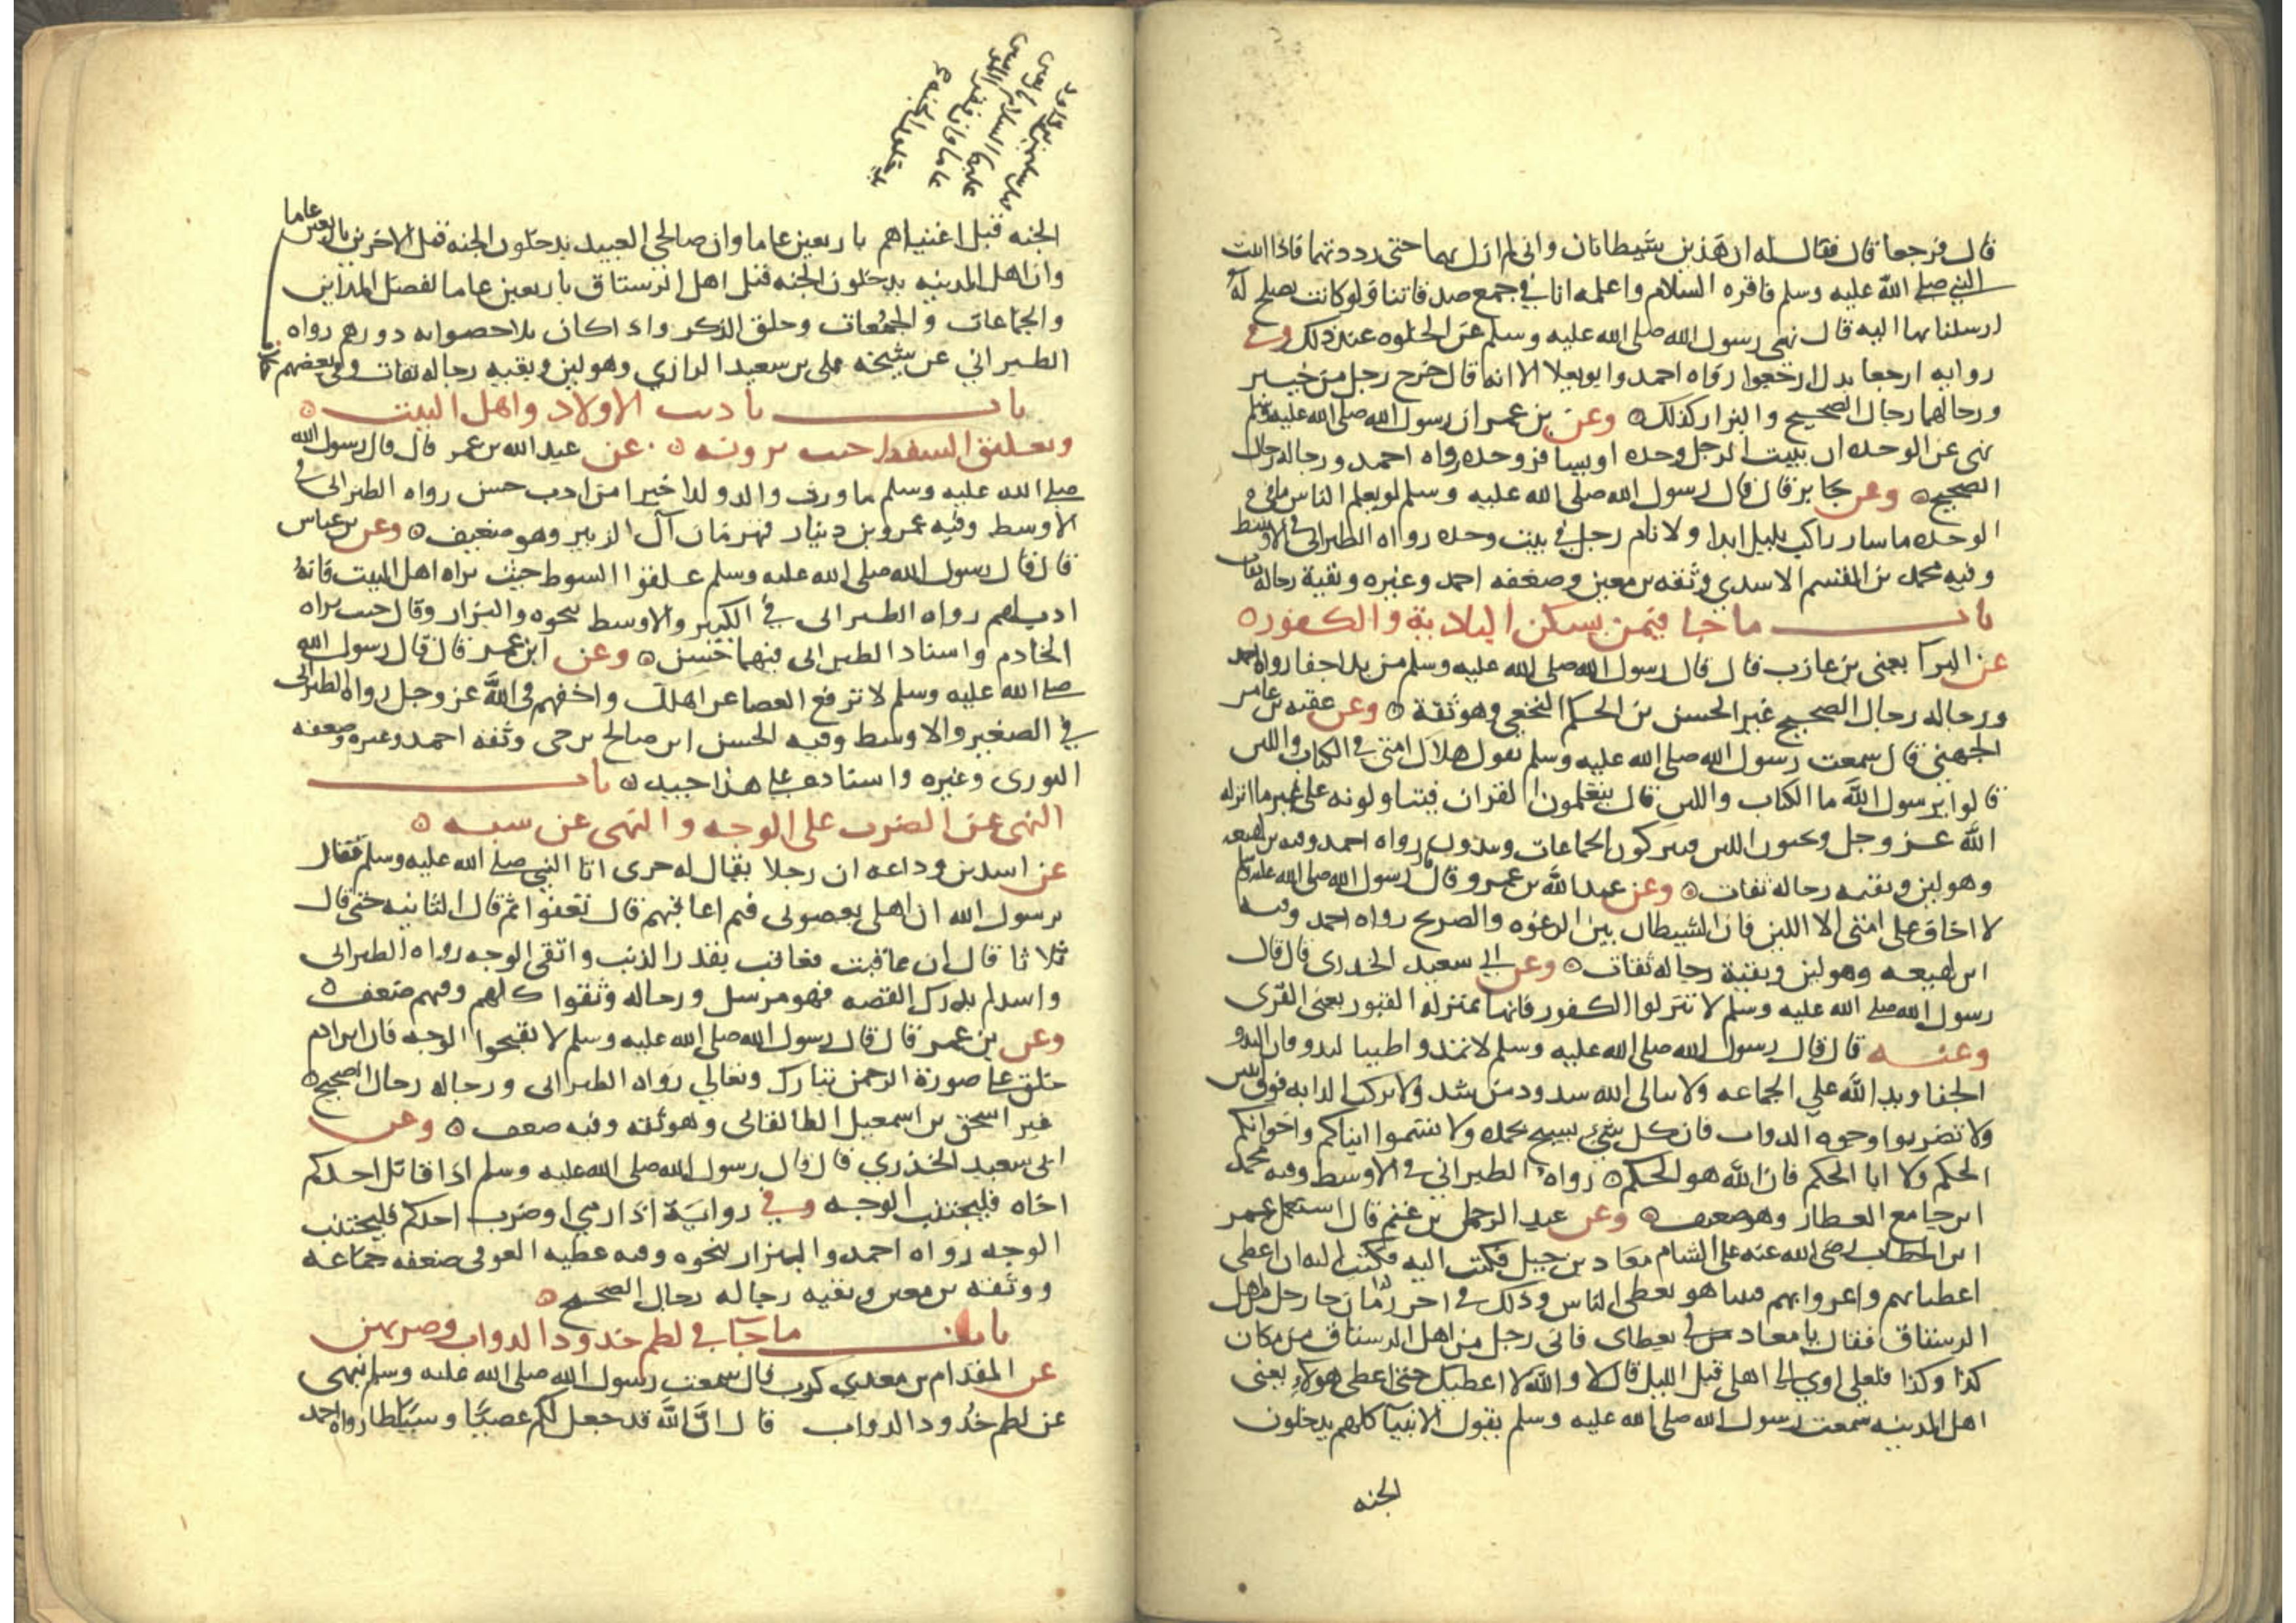 قال فرجعا قال فقال له ان هذين شيطانان واني لم ازل بهما حتى رددتهما فاذا اتيت
النبي صلى الله عليه وسلم فاقره السلام واعلمه انا في جمع صدقاتنا ولو كانت تصلح له
ارسلنا بها اليه قال نهى رسول الله صلى الله عليه وسلم عن الخلوه عند ذلك وفي
روايه ارجعا بدل ارجعوا رواه احمد وابو يعلا الا انه قال خرج رجل من خيبر
ورجالهما رجال الصحيح والبزار كذلك وعن بن عمر ان رسول الله صلى الله عليه وسلم
نهى عن الوحده ان يبيت الرجل وحده او يسافر وحده رواه احمد ورجاله رجال
الصحيح وعن جابر قال قال رسول الله صلى الله عليه وسلم لو يعلم الناس ما في
الوحده ما سار راكب بليل ابدا ولا نام رجل في بيت وحده رواه الطبراني في الاوسط
وفيه محمد بن القسم الاسدي وثقه بن معين وضعفه احمد وغيره وبقية رجاله ثقات
باب ما جا فيمن يسكن البادية والكفور
عن البرا يعني بن عازب قال قال رسول الله صلى الله عليه وسلم من بدا جفا رواه احمد
ورجاله رجال الصحيح غير الحسن بن الحكم النخعي وهو ثقة وعن عقبه بن عامر
الجهني قال سمعت رسول الله صلى الله عليه وسلم يقول هلاك امتي في الكتاب واللبن
قالوا يرسول الله ما الكتاب واللبن قال يتعلمون القران فيتاولونه على غير ما انزله
الله عز وجل ويحبون اللبن فيتركون الجماعات ويبدون رواه احمد وفيه بن لهيعه
وهو لين وبقيه رجاله ثقات وعن عبد الله بن عمرو قال رسول الله صلى الله عليه وسلم
لا اخاف على امتي الا اللبن فان الشيطان بين الرغوه والصريح رواه احمد وفيه
ابن لهيعه وهو لين وبقية رجاله ثقات وعن ابي سعيد الخدري قال قال
رسول الله صلى الله عليه وسلم لا تنزلوا الكفور فانها بمنزلة القبور يعني القرى
وعنه قال قال رسول الله صلى الله عليه وسلم لا
الجفا ويد الله على الجماعه ولا يبالي الله شدود من شد ولا تركب الدابه فوق
ولا تضربوا وجوه الدواب فان كل شيء يسبح بحمده ولا تسموا ابناكم واخوانكم
الحكم ولا ابا الحكم فان الله هو الحكم رواه الطبراني في الاوسط وفيه محمد
ابن جامع العطار وهو ضعيف وعن عبد الرحمن بن غنم قال استعمل عمر
ابن الخطاب رضي الله عنه على الشام معاد بن جبل فكتب اليه فكتب اليه ان اعطي
اعطياتهم واغزوا بهم فبينا هو يعطي الناس وذلك في اخر زمان جا رجل من اهل
الرستاق فقال يا معاد مر لي بعطاى فاني رجل من اهل الرستاق من مكان
كذا وكذا فلعلي اوي الى اهلي قبل الليل قال لا والله لا اعطيك حتى اعطي هولاء يعني
اهل المدينه سمعت رسول الله صلى الله عليه وسلم يقول الانبيا كلهم يدخلون
الجنه
بن داود
قبل سليمن
عليهما السلام باربعين
عاما وان فقرا المسلمين
يدخلون الجنه
الجنه قبل اغنياهم باربعين عاما وان صالحي العبيد يدخلون الجنه قبل الاخرين باربعين عاما
وان اهل المدينه يدخلون الجنه قبل اهل الرستاق باربعين عاما لفضل المداين
والجماعات والجمعات وحلق الذكر واذا كان بلا خصوا به دورهم رواه
الطبراني عن شيخه علي بن سعيد الرازي وهو لين وبقيه رجاله ثقات وفي بعضهم كلام
باب تاديب الاولاد واهل البيت
وتعليق السوط حيث يرونه عن عبد الله بن عمر قال قال رسول الله
صلى الله عليه وسلم ما ورث والد ولدا خيرا من ادب حسن رواه الطبراني في
الاوسط وفيه عمرو بن دينار قهرمان آل الزبير وهو ضعيف وعن بن عباس
قال قال رسول الله صلى الله عليه وسلم علقوا السوط حيث يراه اهل البيت فانه
ادب لهم رواه الطبراني في الكبير والاوسط بنحوه والبزار وقال حيث يراه
الخادم واسناد الطبراني فيهما حسن وعن ابن عمر قال قال رسول الله
صلى الله عليه وسلم لا ترفع العصا عن اهلك واخفهم في الله عز وجل رواه الطبراني
في الصغير والاوسط وفيه الحسن ابن صالح بن حي وثقه احمد وغيره وضعفه
الثوري وغيره واسناده على هذا جيد باب
النهي عن الضرب على الوجه والنهي عن سبه
عن اسد بن وداعه ان رجلا يقال له حرى اتا النبي صلى الله عليه وسلم فقال
يرسول الله ان اهلي يعصوني فبم اعاقبهم قال تعفوا ثم قال الثانيه حتى قال
ثلاثا قال ان عاقبت فعاقب بقدر الذنب واتقي الوجه رواه الطبراني
واسد لم يدرك القصه فهو مرسل ورجاله وثقوا كلهم وفيهم ضعف
وعن بن عمر قال قال رسول الله صلى الله عليه وسلم لا تقبحوا الوجه فان ابن ادم
خلق على صورة الرحمن تبارك وتعالي رواه الطبراني ورجاله رجال الصحيح
غير اسحق بن اسمعيل الطالقاني وهو ثقه وفيه ضعف وعن
ابي سعيد الخذري قال قال رسول الله صلى الله عليه وسلم اذا قاتل احدكم
اخاه فليجتنب الوجه وفي رواية اذا رمي او ضرب احدكم فليجتنب
الوجه رواه احمد والبزار بنحوه وفيه عطيه العوفي ضعفه جماعه
ووثقه بن معين وبقيه رجاله رجال الصحيح
باب ما جا في لطم خدود الدواب وضربهن
عن المقدام بن معدي كرب قال سمعت رسول الله صلى الله عليه وسلم نهى
عن لطم خدود الدواب قال ان الله قد جعل لكم عصيا وسياطا رواه احمد